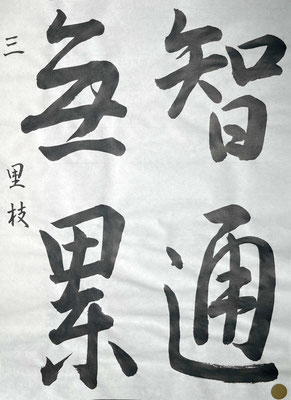 智通
無累
三 里枝